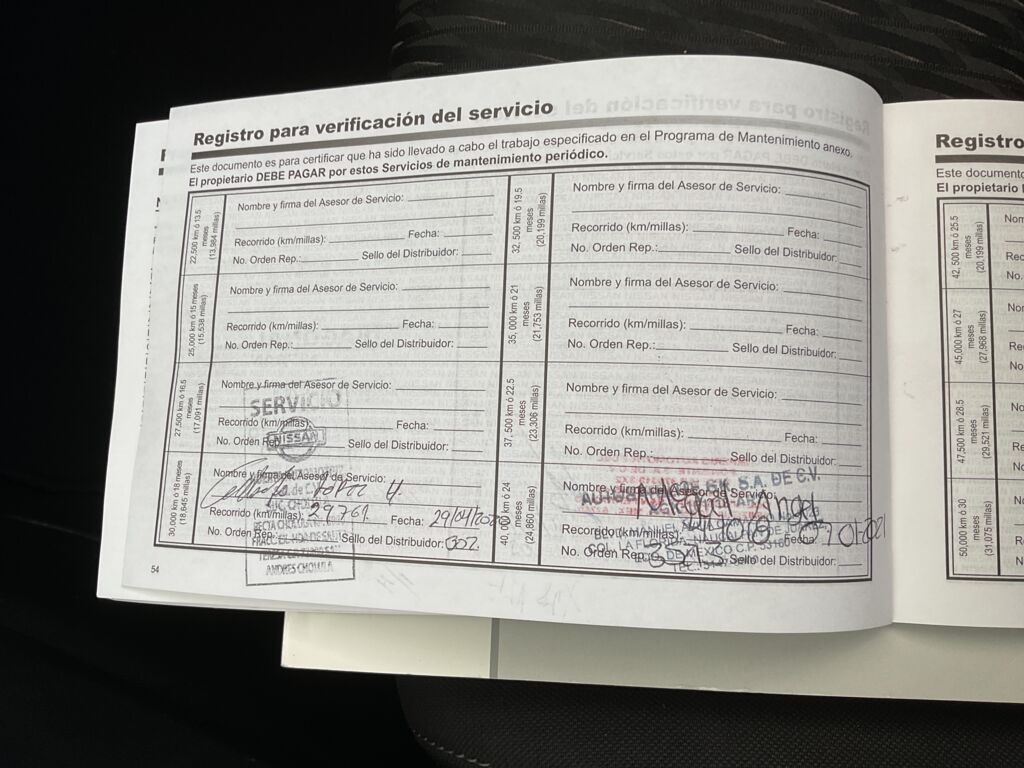 Registro para verificación del servicio
Este documento es para certificar que ha sido llevado a cabo el trabajo especificado en el Programa de Mantenimiento anexo.
El propietario DEBE PAGAR por estos Servicios de mantenimiento periódico.
22,500 km ó 13.5
meses
(13,984 millas)
Nombre y firma del Asesor de Servicio:
Recorrido (km/millas): Fecha:
No. Orden Rep.: Sello del Distribuidor:
25,000 km ó 15 meses
(15,538 millas)
Nombre y firma del Asesor de Servicio:
Recorrido (km/millas): Fecha:
No. Orden Rep.: Sello del Distribuidor:
27,500 km ó 16.5
meses
(17,091 millas)
Nombre y firma del Asesor de Servicio:
SERVICIO
Recorrido (km/millas): Fecha:
NISSAN
No. Orden Rep Sello del Distribuidor:
30,000 km ó 18 meses
(18,645 millas)
Nombre y firma del Asesor de Servicio:
Recorrido (km/millas): 29,761 Fecha: 29/04/
No. Orden Rep. Sello del Distribuidor:
ANDRES CHOLULA
54
32, 500 km ó 19.5
meses
(20,199 millas)
Nombre y firma del Asesor de Servicio:
Recorrido (km/millas): Fecha:
No. Orden Rep.: Sello del Distribuidor:
35, 000 km ó 21
meses
(21,753 millas)
Nombre y firma del Asesor de Servicio:
Recorrido (km/millas): Fecha:
No. Orden Rep.: Sello del Distribuidor:
37, 500 km ó 22.5
meses
(23,306 millas)
Nombre y firma del Asesor de Servicio:
Recorrido (km/millas): Fecha:
No. Orden Rep.: Sello del Distribuidor:
40, 000 km ó 24
meses
(24,860 millas)
Nombre y firma del Asesor de Servicio:
S.A. DE C.V.
Angel
Recorrido (km/millas): Fecha
No. Orden Rep. Sello del Distribuidor:
COL. LA FLORIDA, NAUCALPAN DE
DE MEXICO C.P. 53160
TEL.
Registro
Este documento
El propietario
42, 500 km ó 25.5
meses
(20,199 millas)
45,000 km ó 27
meses
(27,968 millas)
47,500 km ó 28.5
meses
(29,521 millas)
50,000 km ó 30
meses
(31,075 millas)